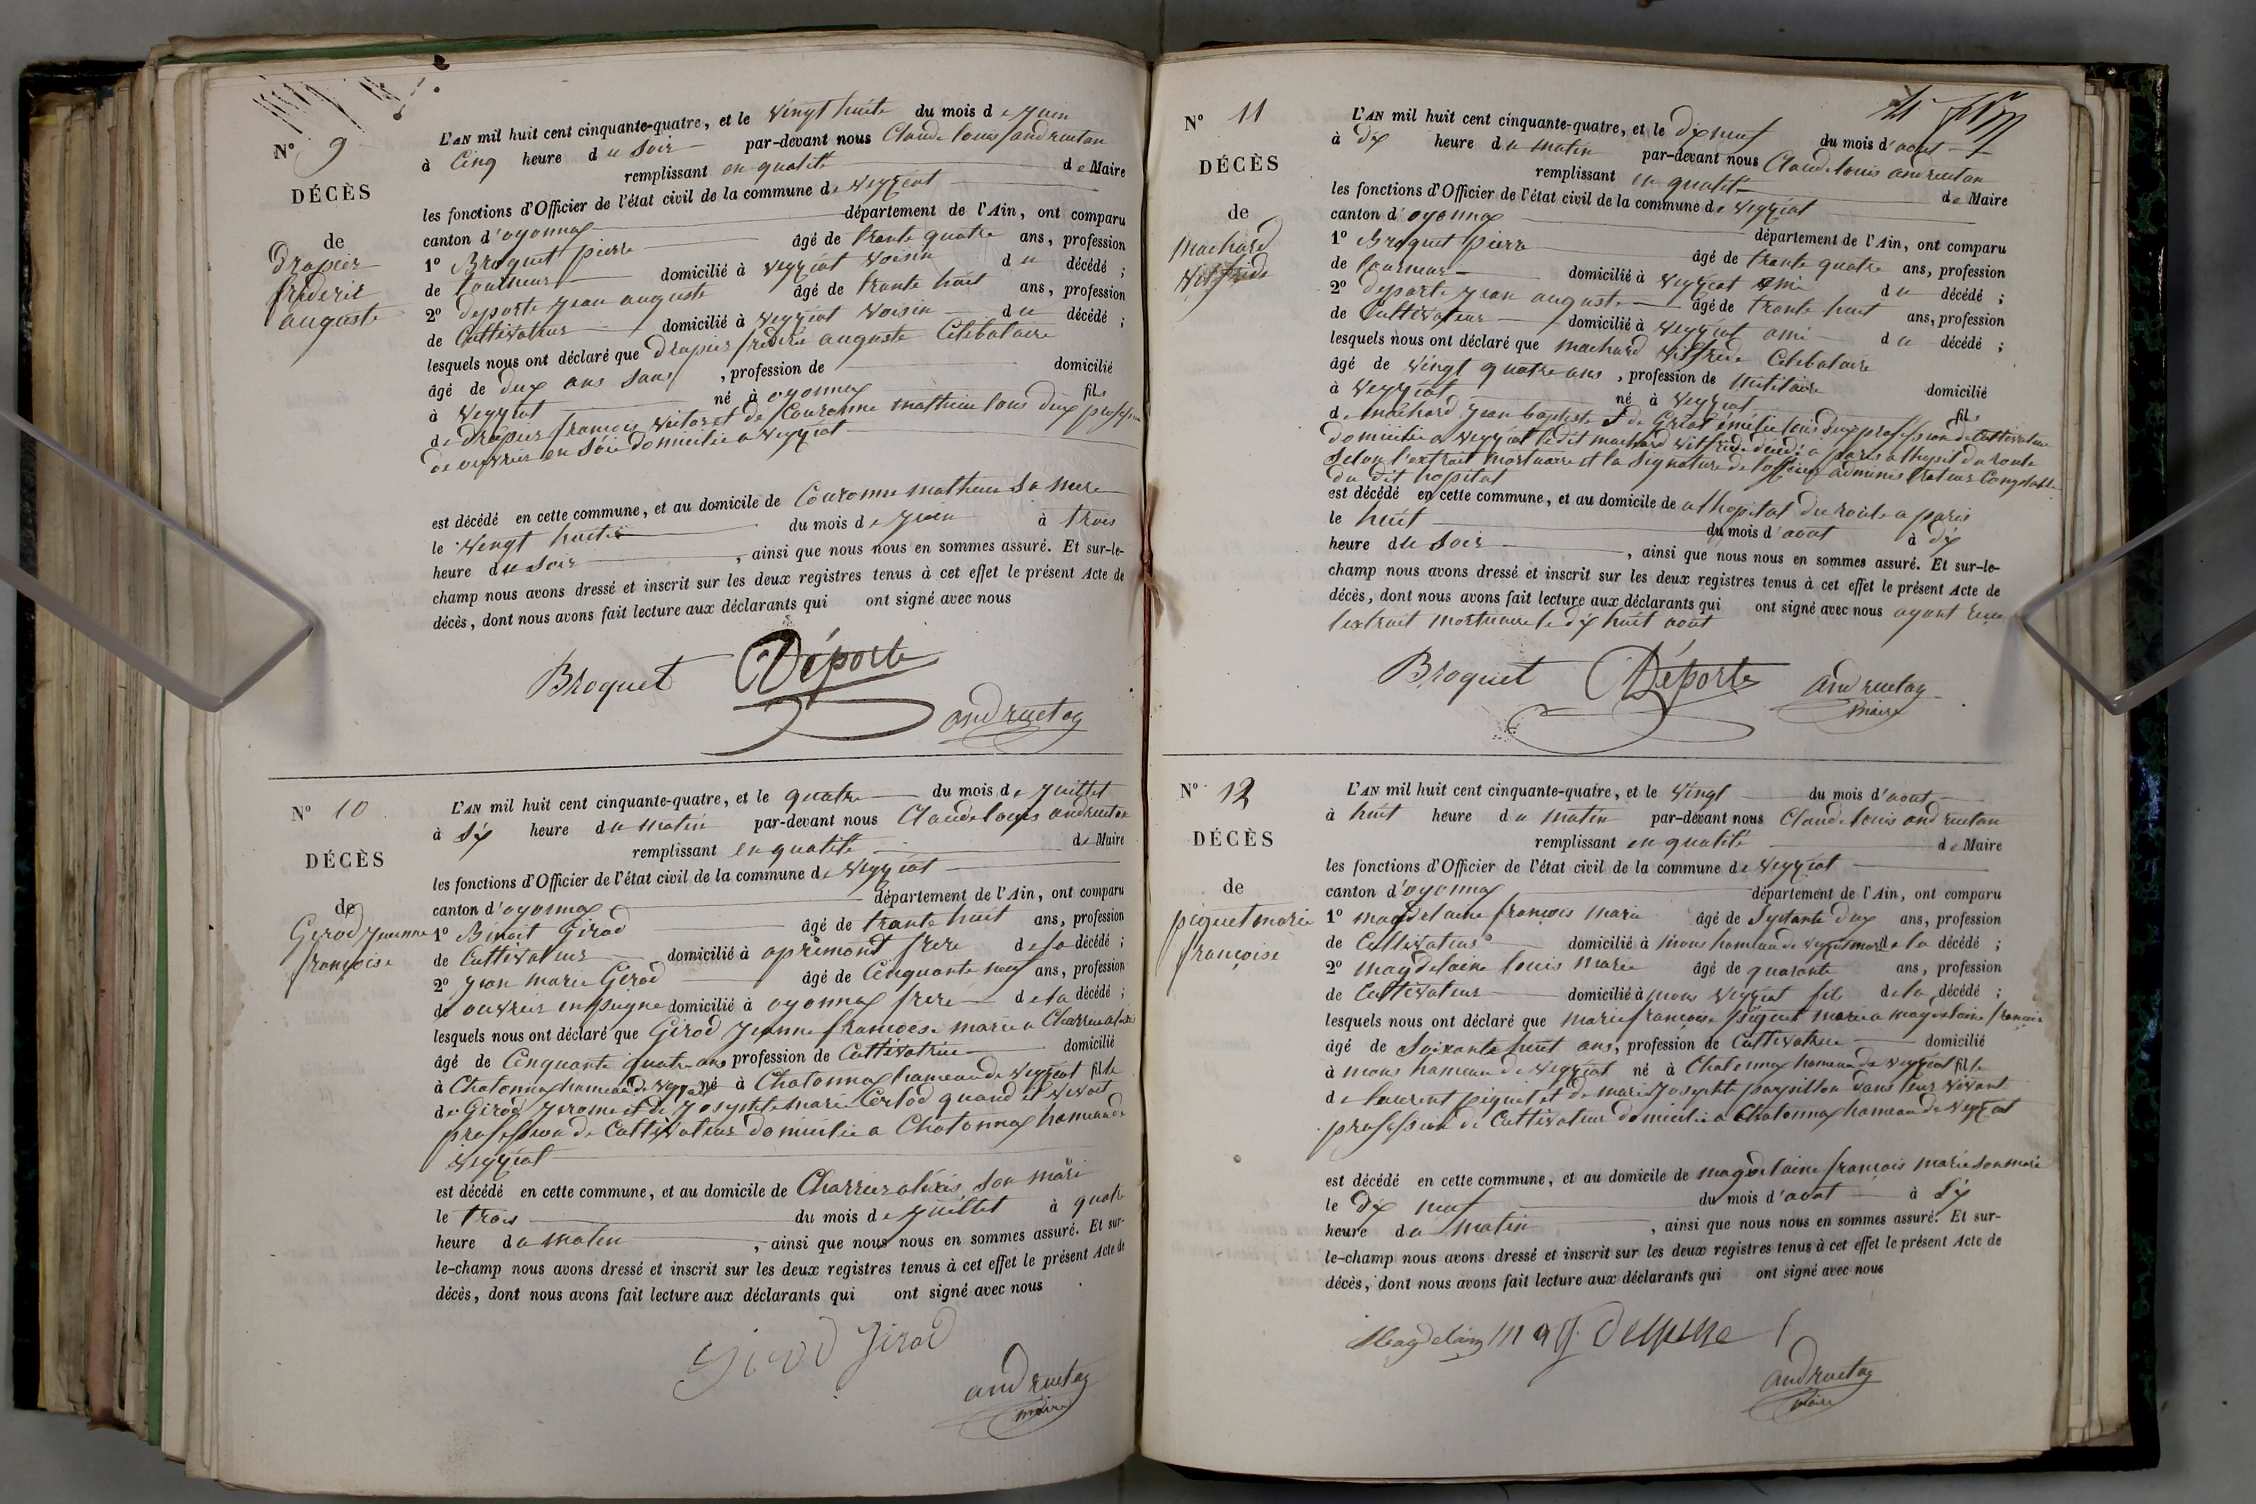 N° 9
DÉCÈS
de
Drapier
frédéric
auguste
L'AN mil huit cent cinquante-quatre, et le vingt huite du mois de Juin
à Cinq heure du Soir par-devant nous Claude louis andruetan
remplissant en qualité de Maire
les fonctions d'Officier de l'état civil de la commune de veyziat
canton d'oyonnax département de l'Ain, ont comparu
1° Broquet pierre âgé de trante quatre ans, profession
de tourneur domicilié à veyziat voisin du décédé ;
2° deporte Jean auguste âgé de trante huit ans, profession
de Cultivateur domicilié à veyziat voisin du décédé ;
lesquels nous ont déclaré que drapier frédéric auguste Célebataire
âgé de deux ans sans , profession de domicilié
à veyziat né à oyonnax fils
de drapier françois victor et de Couronne mathieu tous deux profession
de ouvrier en Soie domicilié a veyziat
est décédé en cette commune, et au domicile de Couronne mathieu Sa mere
le vengt huitie du mois de Juin à trois
heure du soir , ainsi que nous nous en sommes assuré. Et sur-le-
champ nous avons dressé et inscrit sur les deux registres tenus à cet effet le présent Acte de
décès, dont nous avons fait lecture aux déclarants qui ont signé avec nous
Broquet Déporte
andruetan
N° 10
DÉCÈS
de
Girod Jeanne
françoise
L'AN mil huit cent cinquante-quatre, et le quatre du mois de Juillet
à Six heure du matin par-devant nous Claude louis andruetan
remplissant en qualité de Maire
les fonctions d'Officier de l'état civil de la commune de veyziat
canton d'oyonnax département de l'Ain, ont comparu
1° Benoit Girod âgé de trante huit ans, profession
de Cultivateur domicilié à apremont frere de la décédé ;
2° Jean marie Girod âgé de Cinquante neuf ans, profession
de ouvrier en peigne domicilié à oyonnax frere de la décédé ;
lesquels nous ont déclaré que Girod Jeanne françoise marie a Charrier alexis
âgé de Cinquante quatre ans profession de Cultivatrice domicilié
à Chatonnax hameau de veyziat né à Chatonnax hameau de veyziat fille
de Girod Jerome et de Josephte marie Certod quand il vivoit
profession de Cultivateur domicilié a Chatonnax hameau de
veyziat
est décédé en cette commune, et au domicile de Charrier alexis son mari
le trois du mois de Juillet à quatre
heure du maten , ainsi que nous nous en sommes assuré. Et sur-
le-champ nous avons dressé et inscrit sur les deux registres tenus à cet effet le présent Acte de
décès, dont nous avons fait lecture aux déclarants qui ont signé avec nous
Girod Girod
andruetan
maire
N° 11
DÉCÈS
de
Machard
Wilfride
L'AN mil huit cent cinquante-quatre, et le dix neuf du mois d'aout
à dix heure du matin par-devant nous Claude louis andruetan
remplissant en qualité de Maire
les fonctions d'Officier de l'état civil de la commune de veyziat
canton d'oyonnax département de l'Ain, ont comparu
1° Broquet pierre âgé de trante quatre ans, profession
de tourneur domicilié à veyziat ami du décédé ;
2° deporte Jean auguste âgé de trante huit ans, profession
de Cultivateur domicilié à veyziat ami du décédé ;
lesquels nous ont déclaré que machard Wilfride Célebataire
âgé de vingt quatre ans , profession de Militaire domicilié
à veyziat né à veyziat fils
de machard Jean baptiste et de Gréat émélie tous deux profession de Cultivateur
domicilié a veyziat ledit machard Wilfride décédé a paris a lhopit du roule
Selon l'extrait mortuaire et la Signature de lofficier administrateur Comptable
du dit hopital
est décédé en cette commune, et au domicile de a lhopital du roule a paris
le huit du mois d'aout à dix
heure du Soir , ainsi que nous nous en sommes assuré. Et sur-le-
champ nous avons dressé et inscrit sur les deux registres tenus à cet effet le présent Acte de
décès, dont nous avons fait lecture aux déclarants qui ont signé avec nous ayant reçu
lextrait mortuaire le dix huit aout
Broquet Déporte andruetan
maire
N° 12
DÉCÈS
de
piquet marie
françoise
L'AN mil huit cent cinquante-quatre, et le vingt du mois d'aout
à huit heure du matin par-devant nous Claude louis andruetan
remplissant en qualité de Maire
les fonctions d'Officier de l'état civil de la commune de veyziat
canton d'oyonnax département de l'Ain, ont comparu
1° magdelaine françois marie âgé de Syxtante deux ans, profession
de Cultivateur domicilié à mons hameau de veyziat mari de la décédé ;
2° magdelaine louis marie âgé de quarante ans, profession
de Cultivateur domicilié à mons veyziat fils de la décédé ;
lesquels nous ont déclaré que marie françoise piquet marie a magdelaine françois
âgé de Soixante huit ans, profession de Cultivatrice domicilié
à mons hameau de veyziat né à Chatonnax hameau de veyziat fille
de laurent piquet et de marie Josephte papillon dans leur vivant
profession de Cultivateur domicilié a Chatonnax hameau de veyziat
est décédé en cette commune, et au domicile de magdelaine françois marie son mari
le dix neuf du mois d'aout à Six
heure du matin , ainsi que nous nous en sommes assuré. Et sur-
le-champ nous avons dressé et inscrit sur les deux registres tenus à cet effet le présent Acte de
décès, dont nous avons fait lecture aux déclarants qui ont signé avec nous
andruetan
maire